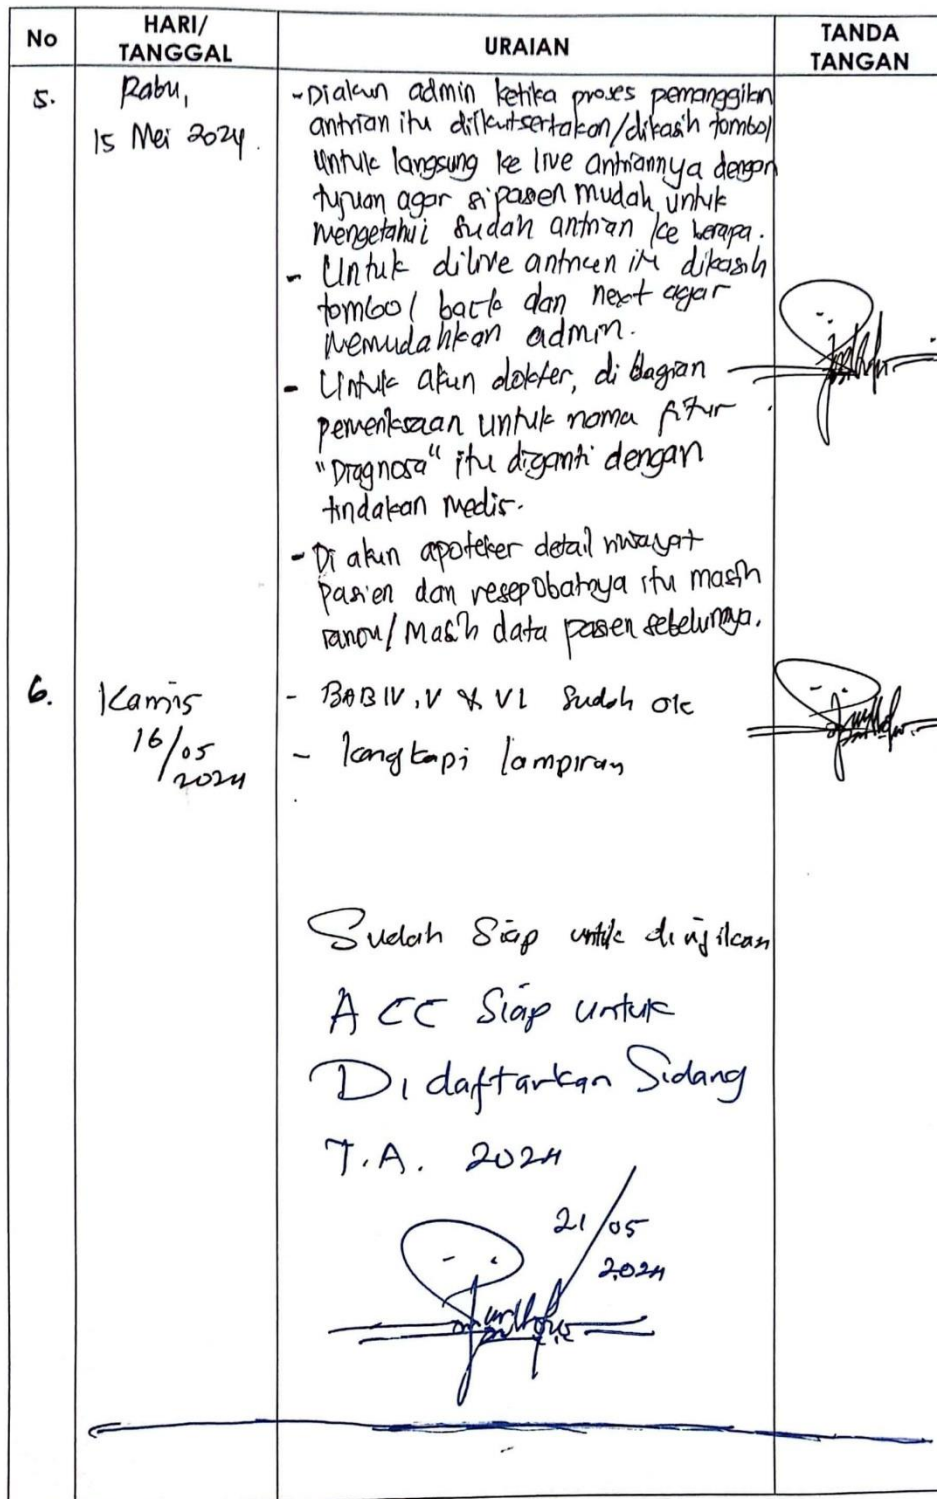 No HARI/ TANGGAL URAIAN TANDA TANGAN
5. Rabu, 15 Mei 2024.
- Diakun admin ketika proses pemanggilan
antrian itu diikutsertakan/dikasih tombol
untuk langsung ke live antriannya dengan
tujuan agar si pasen mudah untuk
mengetahui sudah antrian ke berapa.
- Untuk dilive antrian itu dikasih
tombol back dan next agar
memudahkan admin.
- Untuk akun dokter, di bagian
pemeriksaan untuk nama fitur
"Diagnosa" itu diganti dengan
tindakan medis.
- Di akun apoteker detail riwayat
pasien dan resepobatnya itu masih
/ Masih data pasien sebelumnya.
6. Kamis 16/05 2024
- BAB IV, V & VI sudah ok
- lengkapi lampiran
Sudah Siap untuk diujikan
ACC Siap untuk
Didaftarkan Sidang
T.A. 2024
21/05
2024